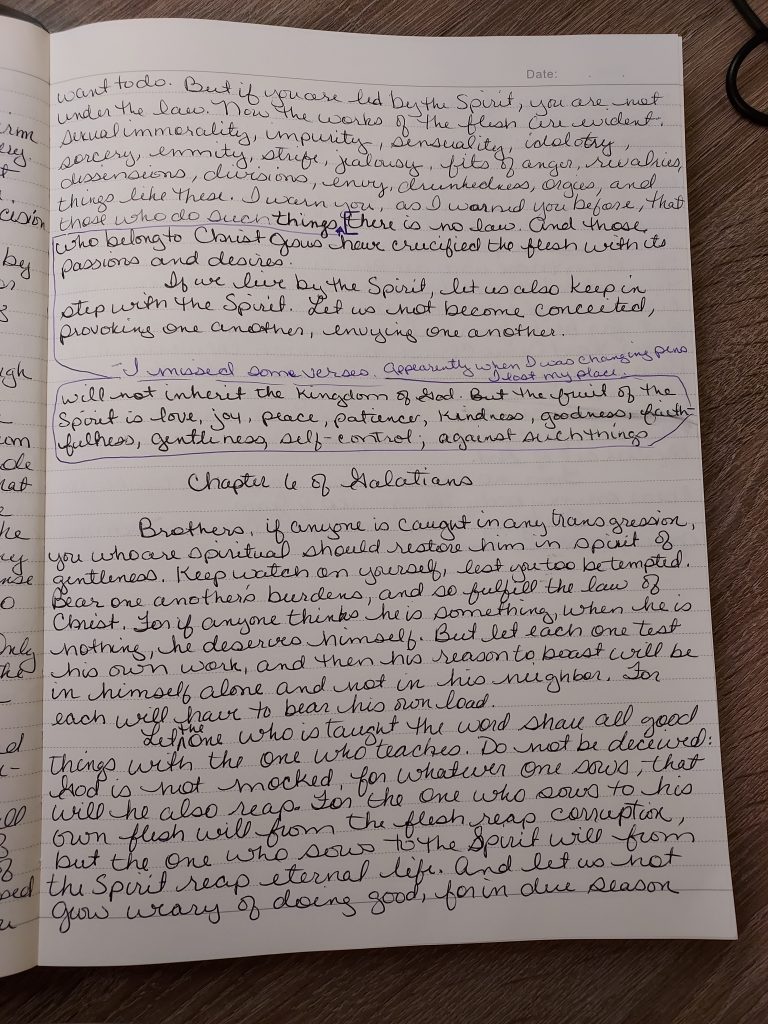 Date:
want to do. But if you are led by the Spirit, you are not
under the law. Now the works of the flesh are evident.
sexual immorality, impurity, sensuality, idolotry,
sorcery, enmity, strife, jealousy, fits of anger, rivalries,
dissensions, divisions, envy, drunkedness, orgies, and
things like these. I warn you, as I warned you before, that
those who do such things, there is no law. And those
who belong to Christ Jesus have crucified the flesh with its
passions and desires.
If we live by the Spirit, let us also keep in
step with the Spirit. Let us not become conceited,
provoking one another, envying one another.
- I missed some verses. Appearently when I was changing pens
I lost my place.
will not inherit the Kingdom of God. But the fruit of the
Spirit is love, joy, peace, patience, kindness, goodness, faith-
fulness, gentleness, self-control; against such things
Chapter 6 of Galatians
Brothers, if anyone is caught in any transgression,
you who are spiritual should restore him in spirit of
gentleness. Keep watch on yourself, lest you too be tempted.
Bear one another's burdens, and so fulfill the law of
Christ. For if anyone thinks he is something, when he is
nothing, he deserves himself. But let each one test
his own work, and then his reason to boast will be
in himself alone and not in his neighbor. For
each will have to bear his own load.
Let the one who is taught the word share all good
things with the one who teaches. Do not be deceived:
God is not mocked, for whatever one sows, that
will he also reap. For the one who sows to his
own flesh will from the flesh reap corruption,
but the one who sows to the Spirit will from
the Spirit reap eternal life. And let us not
grow weary of doing good, for in due season